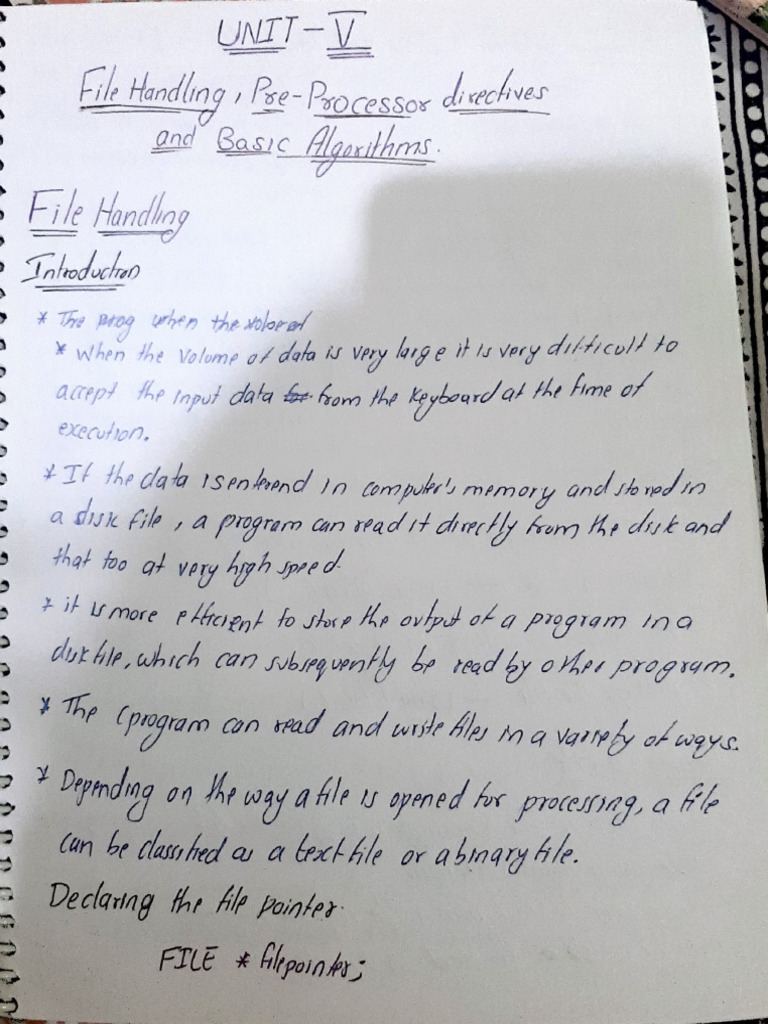 UNIT-V
File Handling, Pre-Processor directives
and Basic Algorithms.
File Handling
Introduction
* The prog when the
* when the volume of data is very large it is very difficult to
accept the input data from the keyboard at the time of
execution.
* If the data is enterend in computer's memory and stored in
a disk file, a program can read it directly from the disk and
that too at very high speed.
* it is more efficient to store the output of a program in a
disk file, which can subsequently be read by other program.
* The C program can read and write files in a variety of ways.
* Depending on the way a file is opened for processing, a file
can be classified as a text file or a binary file.
Declaring the file pointer.
FILE * filepointer;